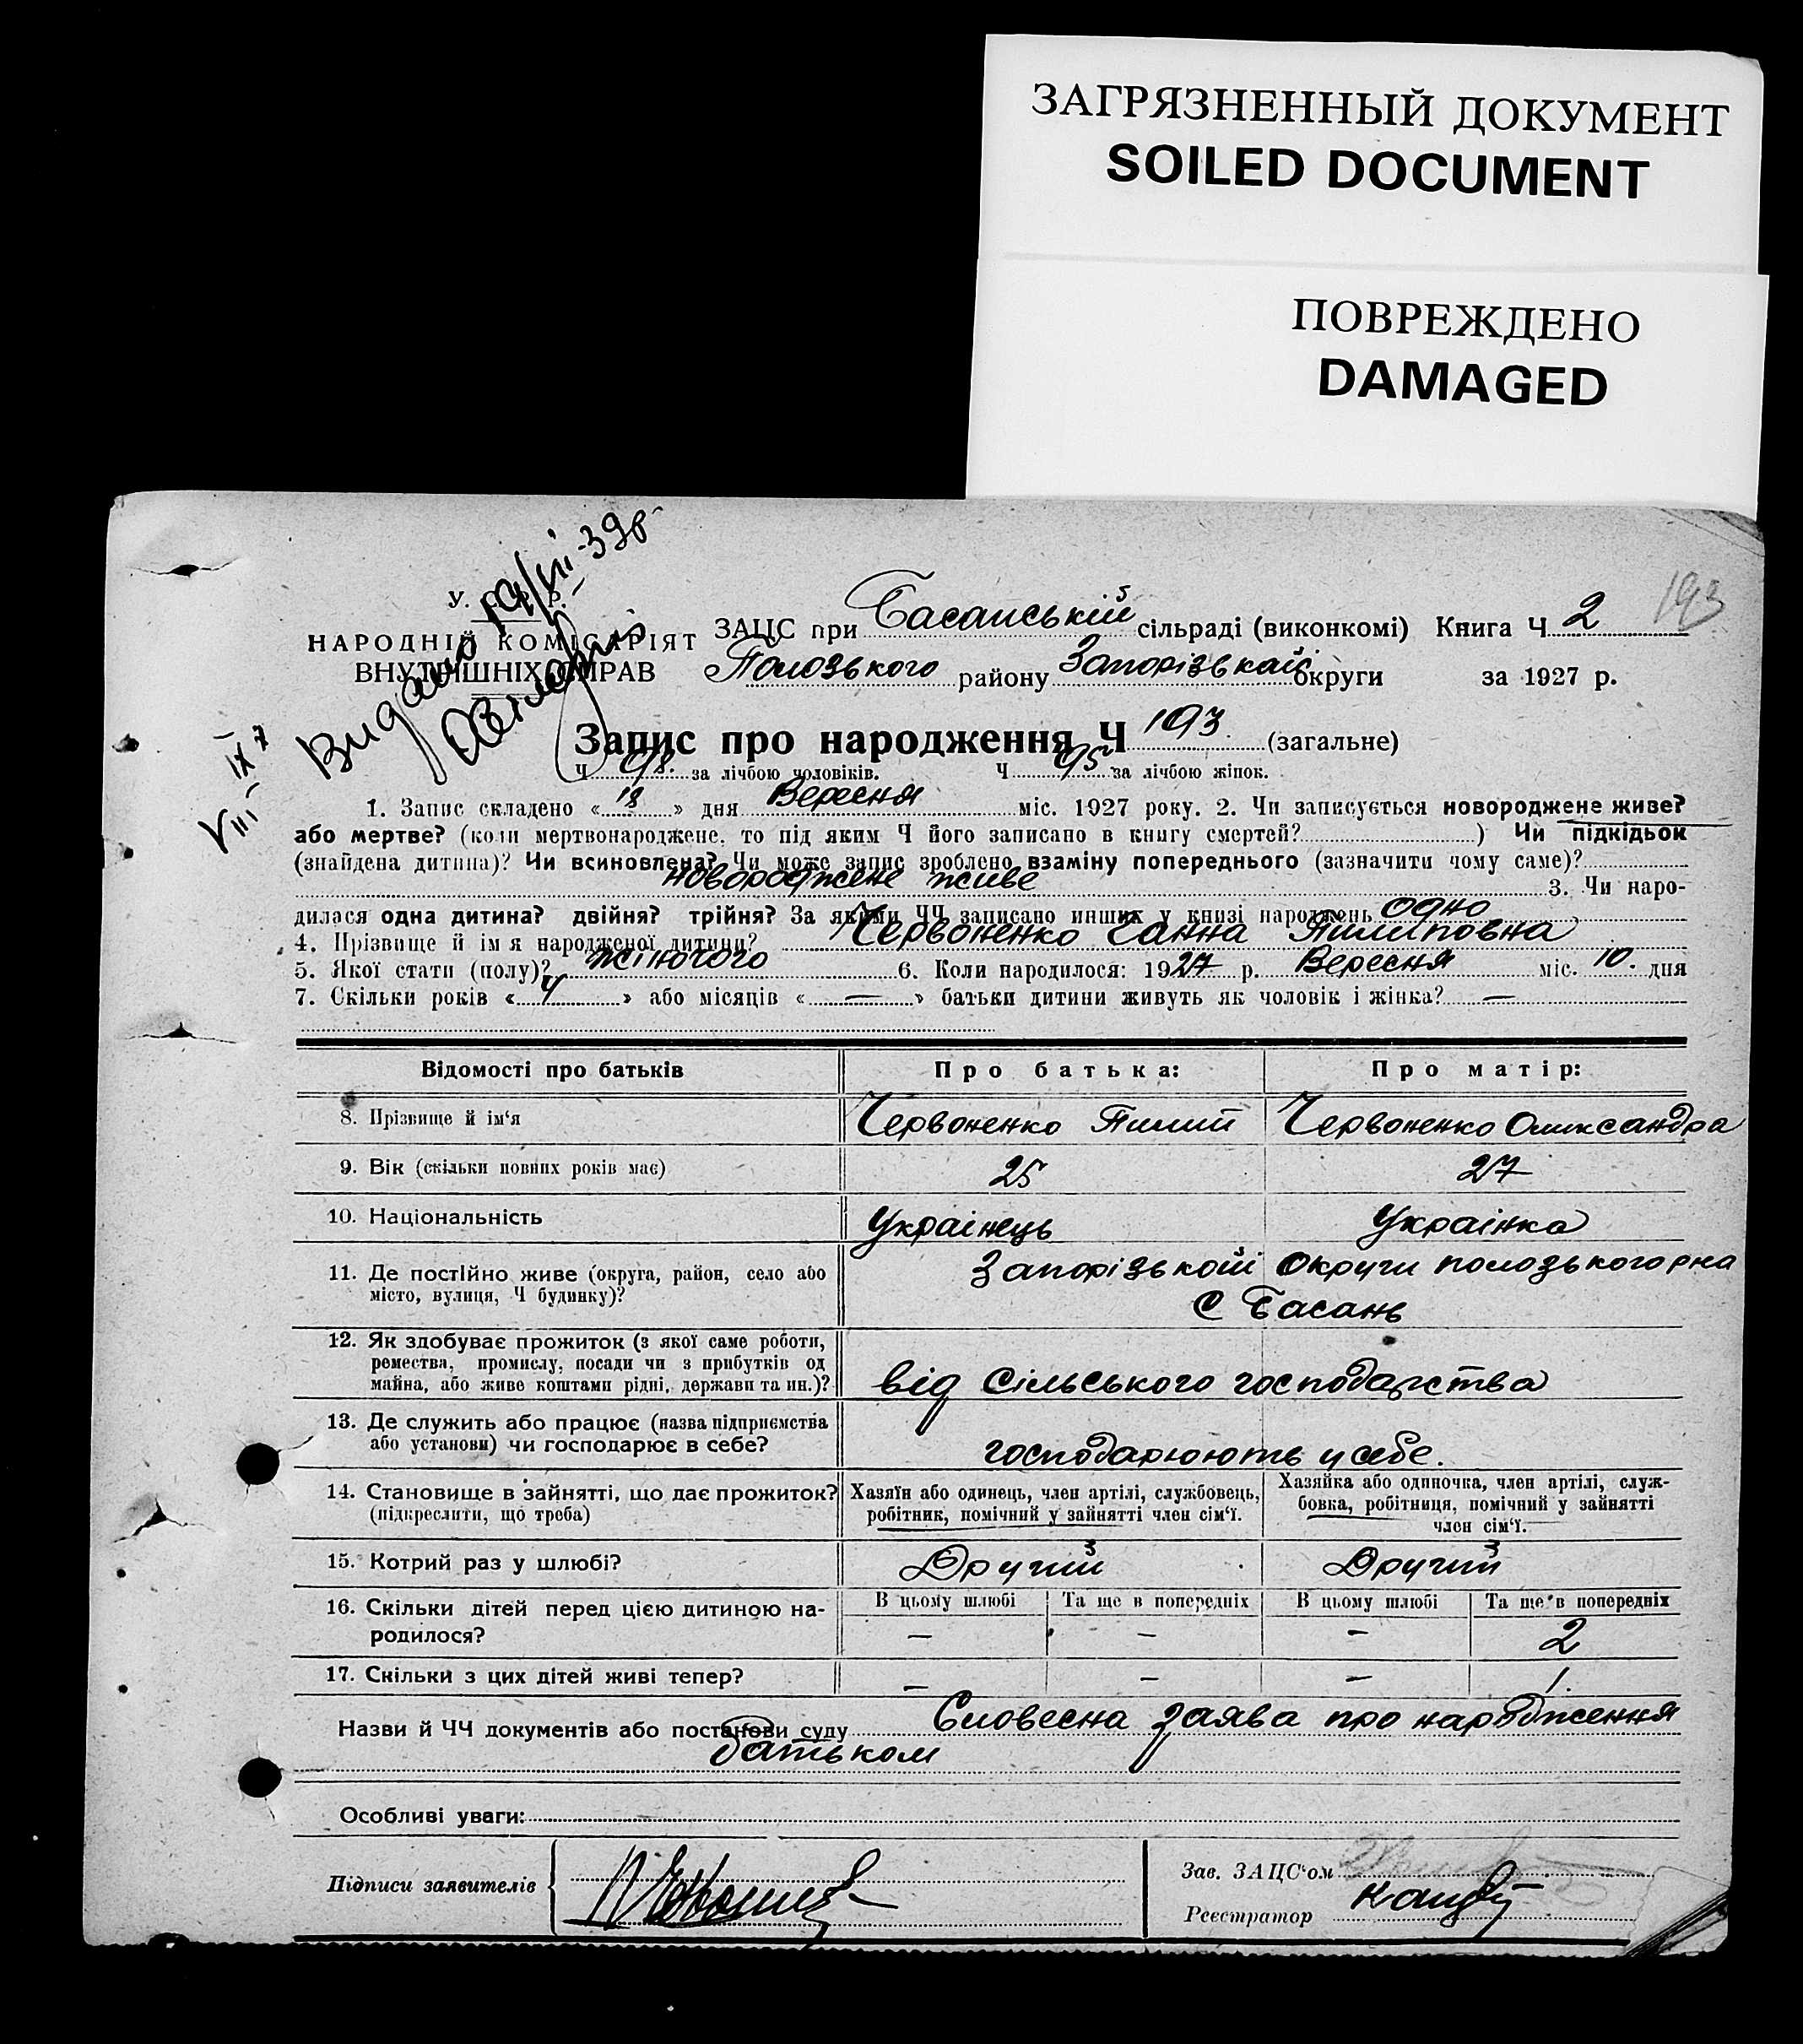 ЗАГРЯЗНЕННЫЙ ДОКУМЕНТ
SOILED DOCUMENT
ПОВРЕЖДЕНО
DAMAGED
193
Видано
У. С. Р. Р.
НАРОДНІЙ КОМІСАРІЯТ
ВНУТРІШНІХ СПРАВ
ЗАЦС при Басанській сільраді (виконкомі) Книга Ч 2
Пологзького району Запорізької округи за 1927 р.
Запис про народження Ч 193 (загальне)
Ч 98 за лічбою чоловіків. Ч 95 за лічбою жінок.
1. Запис складено « 18 » дня Вересня міс. 1927 року. 2. Чи записується новороджене живе?
або мертве? (коли мертвонароджене, то під яким Ч його записано в книгу смертей? ) Чи підкідьок
(знайдена дитина)? Чи всиновлена? Чи може запис зроблено взаміну попереднього (зазначити чому саме)?
новороджене живе 3. Чи наро-
дилася одна дитина? двійня? трійня? За якими ЧЧ записано инших у книзі народжень одно
4. Прізвище й ім я народженої дитини? Червоненко Ганна Пилиповна
5. Якої стати (полу)? жіночого 6. Коли народилося: 1927 р. Вересня міс. 10. дня
7. Скільки років « » або місяців « — » батьки дитини живуть як чоловік і жінка? —
Відомості про батьків Про батька: Про матір:
8. Прізвище й ім‘я Червоненко Пилип Червоненко Олександра
9. Вік (скільки повних років має) 25 27
10. Національність Українець Українка
11. Де постійно живе (округа, район, село або Запорізькой округи пологзького рна
місто, вулиця, Ч будинку)? с Басань
12. Як здобуває прожиток (з якої саме роботи,
ремества, промислу, посади чи з прибутків од
майна, або живе коштами рідні, держави та ин.)? від сільського господарства
13. Де служить або працює (назва підприємства
або установи) чи господарює в себе? господарюють у себе.
14. Становище в зайнятті, що дає прожиток? Хазяїн або одинець, член артілі, службовець, Хазяйка або одиночка, член артілі, служ-
(підкреслити, що треба) робітник, помічний у зайнятті член сім‘ї. бовка, робітниця, помічний у зайнятті
член сім‘ї.
15. Котрий раз у шлюбі? Другий Другий
16. Скільки дітей перед цією дитиною на- В цьому шлюбі Та ще в попередніх В цьому шлюбі Та ще в попередніх
родилося? — — — 2
17. Скільки з цих дітей живі тепер? — — — 1
Назви й ЧЧ документів або постанови суду Словесна заява про народження
батьком
Особливі уваги:
Підписи заявителів
Зав. ЗАЦС‘ом
Реєстратор